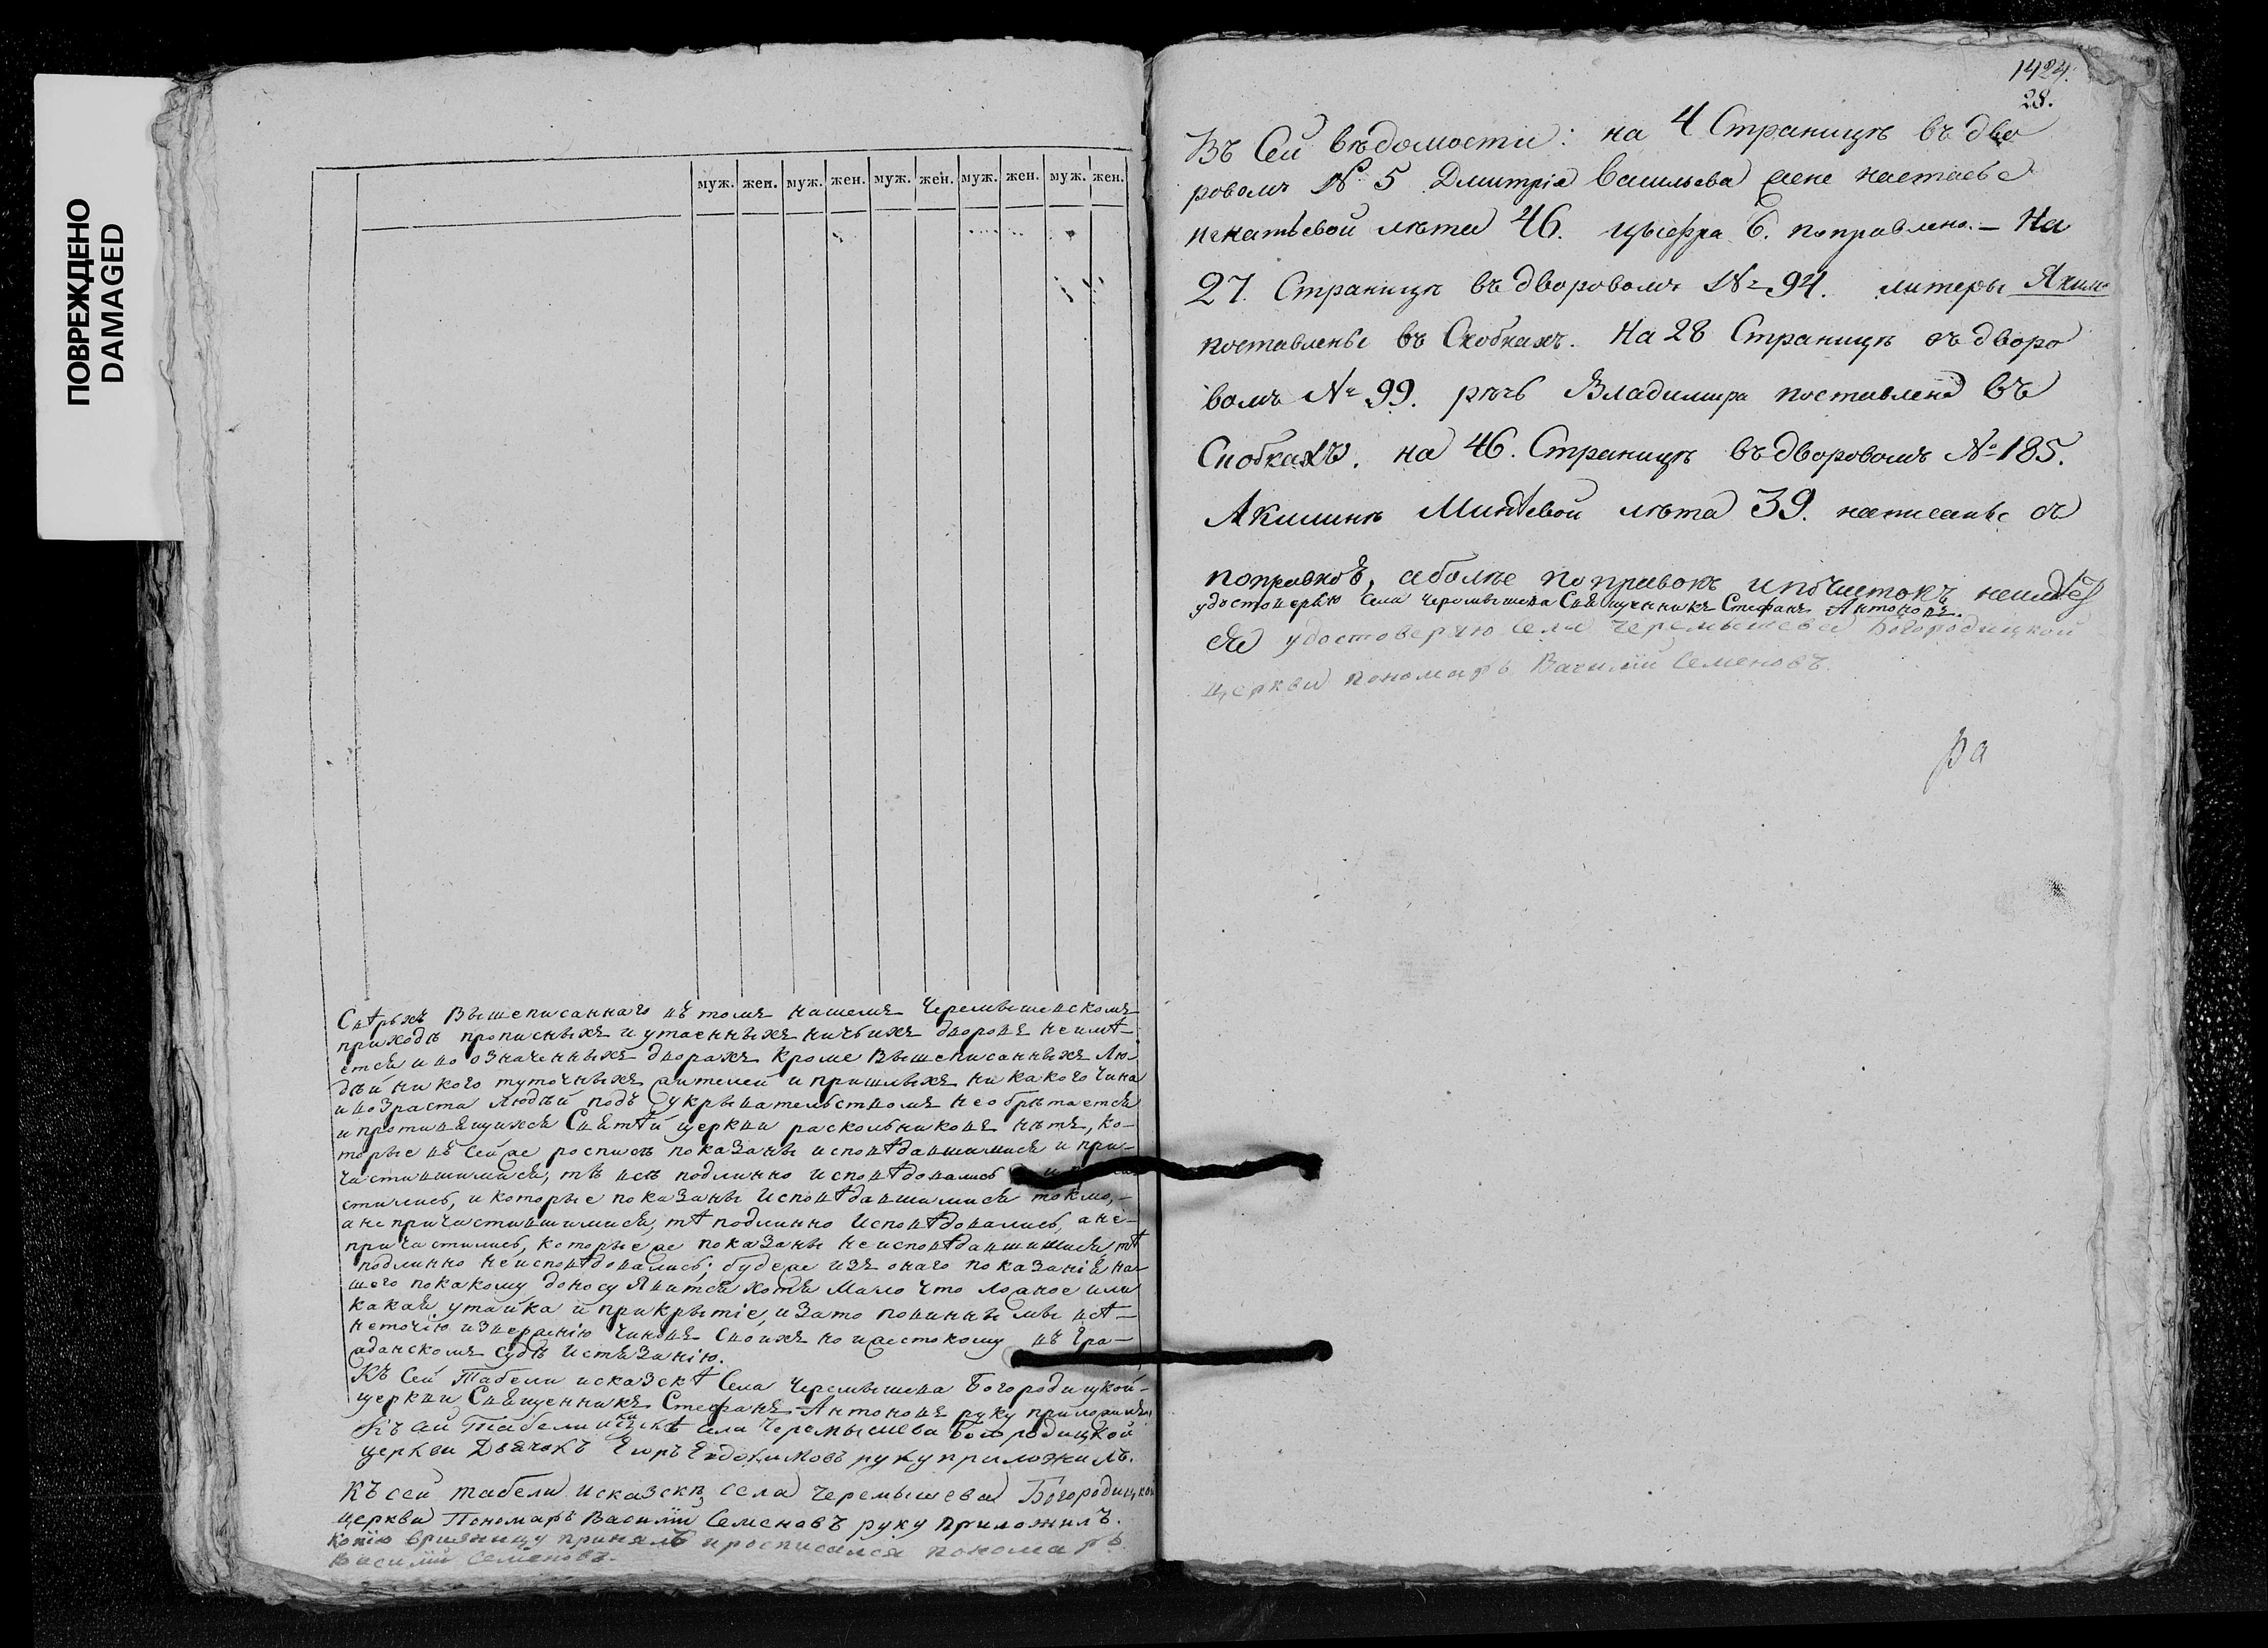 ПОВРЕЖДЕНО
DAMAGED
муж. жен. муж. жен. муж. жен. муж. жен. муж. жен.
Свѣрхъ вышеписаннаго въ томъ нашемъ Черемышевскомъ
приходѣ прописныхъ и утаенныхъ ничьихъ дворовъ неимѣ-
ется и во означенныхъ дворахъ кроме вышеписанныхъ лю-
дѣй никого туточныхъ жителей и пришлыхъ никакого чина
и возраста людѣй подъ укрывательствомъ необрѣтается
и противящихся Святѣй церкви раскольниковъ нѣтъ, ко-
торые въ сей же росписѣ показаны исповѣдавшимися и при-
частившимися, тѣ всѣ подлинно исповѣдовались и
стились, и которые показаны исповѣдавшимися токмо,-
а не причастившимися, тѣ подлинно исповѣдовались, а не-
причастились, которые же показаны неисповѣдавшимися, тѣ
подлинно неисповѣдовались; буде же изъ онаго показанія на-
шего по какому доносу явится хотя мало что ложное или
какая утайка и прикрытіе, и за то повинны мы всѣ-
неточію изверженію чиновъ своихъ но и жестокому въ гра-
жданскомъ судѣ истязанію.
Къ сей табели и сказскѣ Села Черемышева Богородицкой-
церкви Священникъ Стефанъ Антоновъ руку приложилъ
Къ сей табели и сказкѣ села Черемышева Богородицкой
церкви Дьячокъ Егоръ Евдокимовъ руку приложилъ.
Къ сей табели и сказскѣ села Черемышева Богородицкой
церкви Пономарь Василій Семеновъ руку приложилъ.
Копію принялъ и росписался пономарь
Василій Семеновъ.
1424.
28.
Въ Сей вѣдомости: на 4 Страницѣ въ дво
ровомъ № 5 Дмитрія Васильева жене настасье
игнатьевой лѣта 46. цыфра 6. поправлена. - На
27. Страницѣ въ дворовомъ № 94. литеры Яким
поставлены въ Скобкахъ. На 28 Страницѣ въ дворо
вомъ № 99. рѣчь Владимира поставлена въ
Скобкахъ. на 46. Страницѣ въ дворовомъ № 185.
Акилинѣ лѣта 39. написаны съ
поправкою, а более поправокъ и почистокъ
удостоверяю села Черемышева Священникъ Стефанъ Антоновъ.
удостоверяю села Черемышева Богородицкой
церкви пономарь Василій Семеновъ.
ра